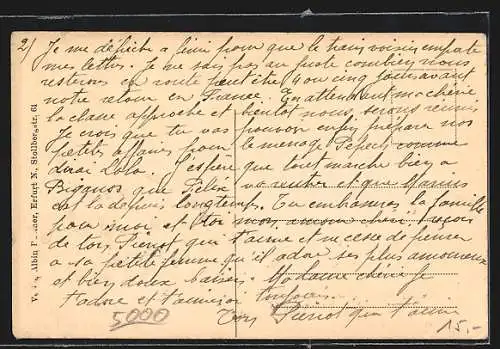 2/ Je me dépêche à finir pour que le train voisin emporte
mes lettres. Je ne sais pas au juste combien nous
resterons en route peut être 4 ou cinq jours avant
notre retour en France. En attendant ma chérie
la classe approche et bientôt nous serons réunis
Je crois que tu vas pouvoir enfin préparer nos
petites affaires pour le ménage Pépers comme
dirait Lolo. J'espère que tout marche bien à
Biganos que Félix va rentrer et que Marius
est là depuis longtemps. Tu embrasses la famille
pour moi et toi mon amour chéri reçois
de ton Pierrot qui t'aime et ne cesse de penser
à sa petite femme qu'il adore ses plus amoureux
et bien doux baisers. Madame chérie je
t'adore et t'aimerai toujours.
Ton Pierrot qui t'aime
5000
15.-
Albin Erfurt N., Stollbergstr. 61